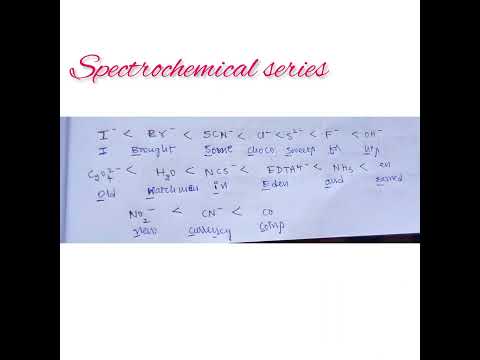 Spectrochemical series
I⁻ < Br⁻ < SCN⁻ < Cl⁻ < S²⁻ < F⁻ < OH⁻
I Brought Some Choco Sweets for his
C₂O₄²⁻ < H₂O < NCS⁻ < EDTA4⁻ < NH₃ < en
Old Watchmen in Eden and Earned
NO₂⁻ < CN⁻ < CO
New Currency Coins